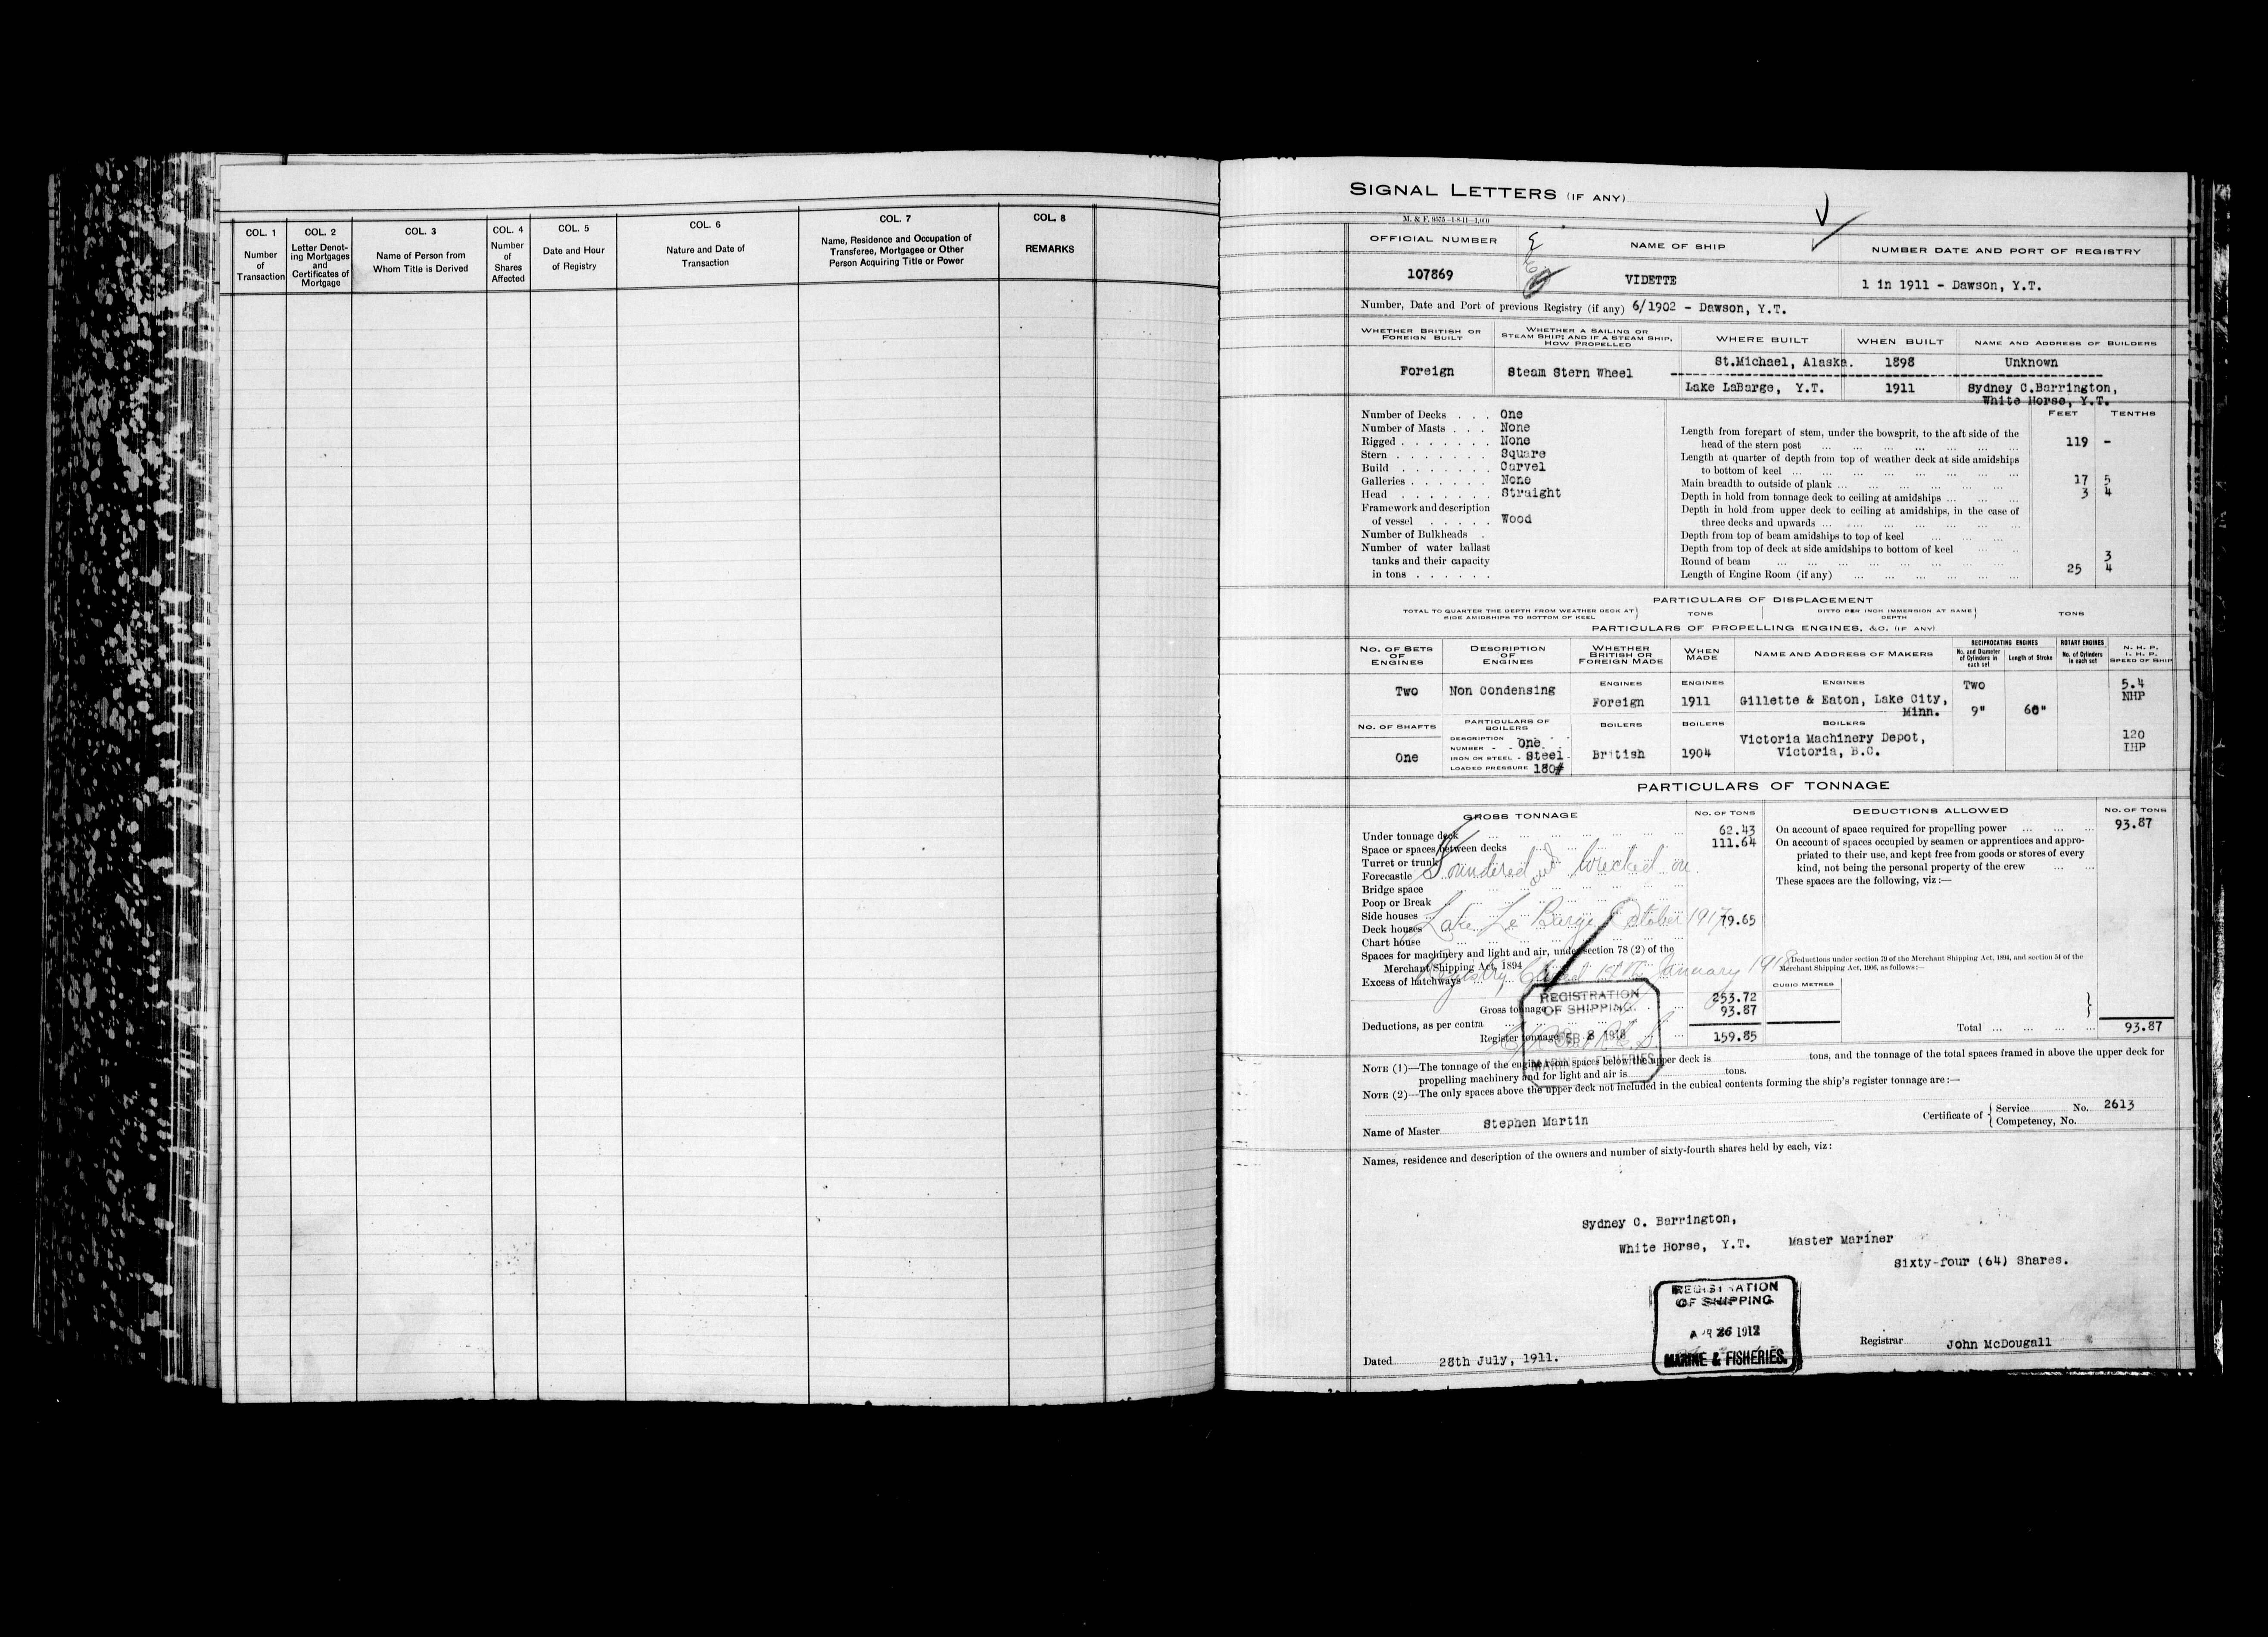 COL. 1
Number
of
Transaction
COL. 2
Letter Denot-
ing Mortgages
and
Certificates of
Mortgage
COL. 3
Name of Person from
Whom Title is Derived
COL. 4
Number
of
Shares
Affected
COL. 5
Date and Hour
of Registry
COL. 6
Nature and Date of
Transaction
COL. 7
Name, Residence and Occupation of
Transferee, Mortgagee or Other
Person Acquiring Title or Power
COL. 8
REMARKS
SIGNAL LETTERS (IF ANY)
M. & F. 9575-1-8-11-1,000
OFFICIAL NUMBER
NAME OF SHIP
NUMBER DATE AND PORT OF REGISTRY
107869
VIDETTE
1 in 1911 - Dawson, Y.T.
Number, Date and Port of previous Registry (if any) 6/1902 - Dawson, Y.T.
WHETHER BRITISH OR
FOREIGN BUILT
WHETHER A SAILING OR
STEAM SHIP; AND IF A STEAM SHIP,
HOW PROPELLED
WHERE BUILT
WHEN BUILT
NAME AND ADDRESS OF BUILDERS
Foreign
Steam Stern Wheel
St.Michael, Alaska.
1898
Unknown
Lake LaBarge, Y.T.
1911
Sydney C.Barrington,
White Horse, Y.T.
Number of Decks . . . One
Number of Masts . . . None
Rigged . . . . . . . None
Stern . . . . . . . Square
Build . . . . . . . Carvel
Galleries . . . . . . None
Head . . . . . . . Straight
Framework and description
of vessel . . . . . Wood
Number of Bulkheads .
Number of water ballast
tanks and their capacity
in tons . . . . . .
FEET TENTHS
Length from forepart of stem, under the bowsprit, to the aft side of the
head of the stern post 119 -
Length at quarter of depth from top of weather deck at side amidships
to bottom of keel
Main breadth to outside of plank 17 5
Depth in hold from tonnage deck to ceiling at amidships 3 4
Depth in hold from upper deck to ceiling at amidships, in the case of
three decks and upwards
Depth from top of beam amidships to top of keel
Depth from top of deck at side amidships to bottom of keel
Round of beam 3
Length of Engine Room (if any) 25 4
PARTICULARS OF DISPLACEMENT
TOTAL TO QUARTER THE DEPTH FROM WEATHER DECK AT
SIDE AMIDSHIPS TO BOTTOM OF KEEL
TONS
DITTO PER INCH IMMERSION AT SAME
DEPTH
TONS
PARTICULARS OF PROPELLING ENGINES, &C. (IF ANY)
NO. OF SETS
OF
ENGINES
DESCRIPTION
OF
ENGINES
WHETHER
BRITISH OR
FOREIGN MADE
WHEN
MADE
NAME AND ADDRESS OF MAKERS
RECIPROCATING ENGINES
No. and Diameter
of Cylinders in
each set
Length of Stroke
ROTARY ENGINES
No. of Cylinders
in each set
N. H. P.
I. H. P.
SPEED OF SHIP
Two
Non Condensing
ENGINES
Foreign
ENGINES
1911
ENGINES
Gillette & Eaton, Lake City,
Minn.
Two
9"
60"
5.4
NHP
NO. OF SHAFTS
One
PARTICULARS OF
BOILERS
DESCRIPTION
NUMBER - - One
IRON OR STEEL - Steel
LOADED PRESSURE 180#
BOILERS
British
BOILERS
1904
BOILERS
Victoria Machinery Depot,
Victoria, B.C.
120
IHP
PARTICULARS OF TONNAGE
GROSS TONNAGE
NO. OF TONS
DEDUCTIONS ALLOWED
NO. OF TONS
Under tonnage deck 62.43
Space or spaces between decks 111.64
Turret or trunk
Forecastle
Bridge space
Poop or Break
Side houses
Deck houses 79.65
Chart house
Spaces for machinery and light and air, under section 78 (2) of the
Merchant Shipping Act, 1894
Excess of hatchways
Gross tonnage 253.72
Deductions, as per contra 93.87
Register tonnage 159.85
Foundered and Wrecked on
Lake Le Barge October 1917
Registry Closed 12th January 1918
REGISTRATION
OF SHIPPING
FEB 8 1918
MARINE & FISHERIES
On account of space required for propelling power 93.87
On account of spaces occupied by seamen or apprentices and appro-
priated to their use, and kept free from goods or stores of every
kind, not being the personal property of the crew
These spaces are the following, viz:—
Deductions under section 79 of the Merchant Shipping Act, 1894, and section 54 of the
Merchant Shipping Act, 1906, as follows:—
CUBIC METRES
Total 93.87
NOTE (1)—The tonnage of the engine room spaces below the upper deck is tons, and the tonnage of the total spaces framed in above the upper deck for
propelling machinery and for light and air is tons.
NOTE (2)—The only spaces above the upper deck not included in the cubical contents forming the ship's register tonnage are:—
Name of Master Stephen Martin
Certificate of { Service No. 2613
Competency, No.
Names, residence and description of the owners and number of sixty-fourth shares held by each, viz:
Sydney C. Barrington,
White Horse, Y.T. Master Mariner
Sixty-four (64) Shares.
REGISTRATION
OF SHIPPING
APR 26 1912
MARINE & FISHERIES.
Dated 28th July, 1911.
Registrar John McDougall